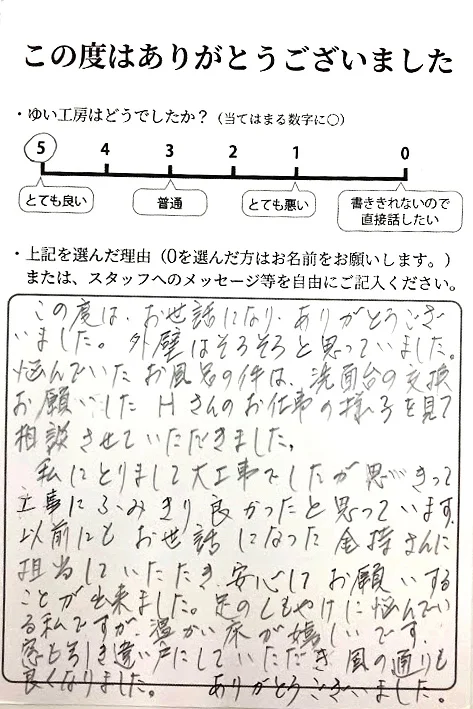 この度はありがとうございました
・ゆい工房はどうでしたか？（当てはまる数字に○）
5 4 3 2 1 0
とても良い 普通 とても悪い 書ききれないので
直接話したい
・上記を選んだ理由（0を選んだ方はお名前をお願いします。）
または、スタッフへのメッセージ等を自由にご記入ください。
この度は、お世話になり、ありがとうござ
いました。外壁はそろそろと思っていました。
悩んでいたお風呂の件は、洗面台の交換
お願いした Hさんのお仕事の様子を見て
相談させていただきました。
私にとりまして大工事でしたが思いきって
工事にふみきり良かったと思っています。
以前にもお世話になった金持さんに
担当していただき、安心してお願いする
ことが出来ました。足のしもやけに悩んでい
る私ですが温かい床が嬉しいです。
窓も引き違い戸にしていただき風の通りも
良くなりました。ありがとうございました。